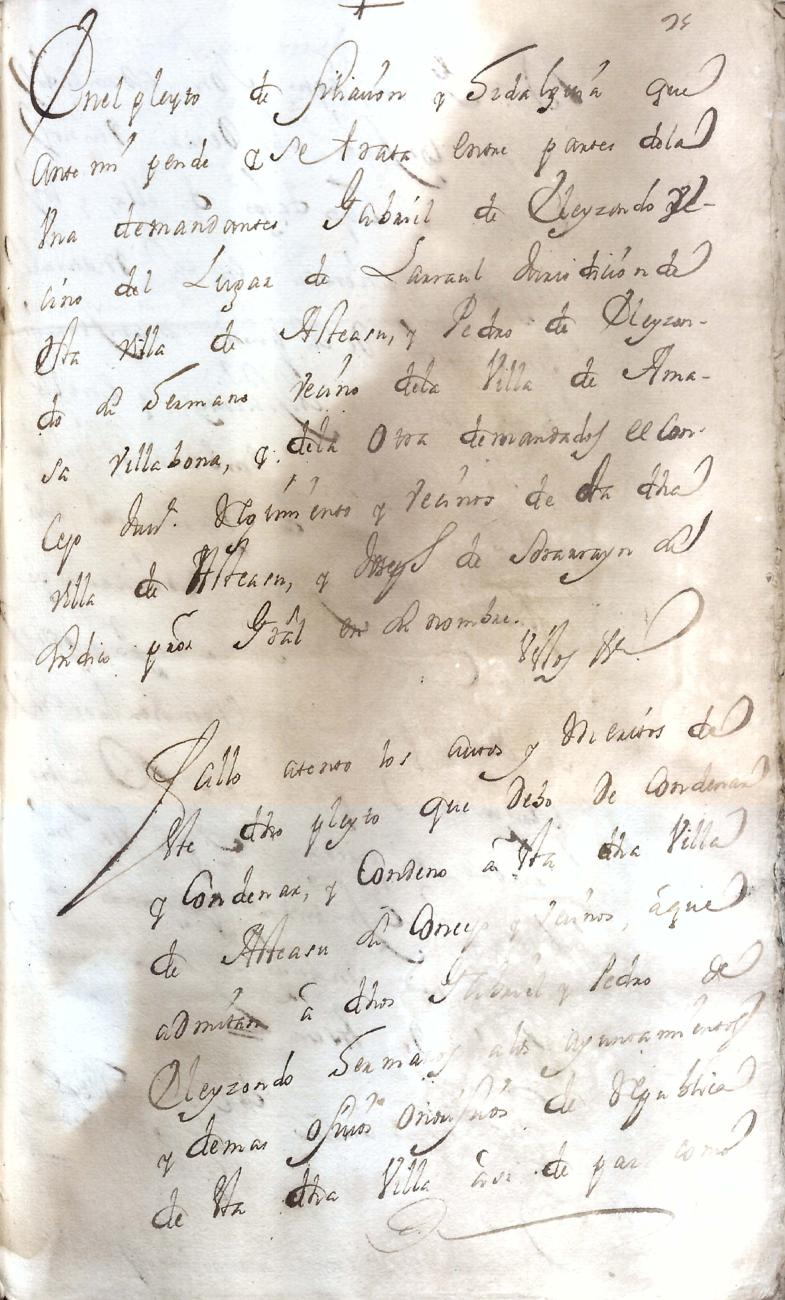 En el pleyto de filiacion y Hidalguia que
Ante mi pende y se trata entre partes dela
Una demandantes Gabriel de Eleyzondo Ve-
cino del Lugar de Larraul Jurisdicion de
Esta villa de Asteasu, y Pedro de Eleyzon-
do su Hermano vecino dela Villa de Ama-
sa Villabona, y dela Otra demandados el Con-
cejo Just.ª Regimiento y vecinos de esta dha
villa de Asteasu, y de su
Sindico pror Gral en su nombre.
Vistos &ª
Fallo atento los autos y Meritos de
Este dho pleyto que Debo De Condenar
y Condenar, y Condeno à Esta dha Villa
de Asteasu su Concejo y vecinos, àque
admitan à dhos Gabriel y Pedro de
Eleyzondo Hermanos alos ayuntamientos
y demas oficios onorificos de Republica
de Esta dha Villa àsi de paz como